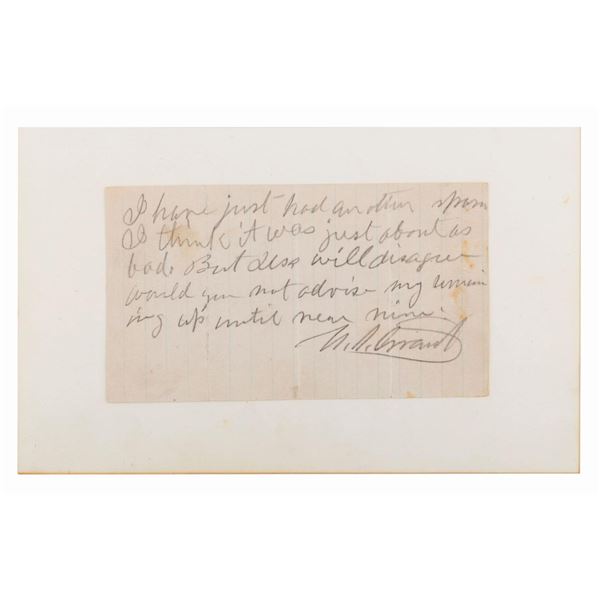 I have just had another spasm
I think it was just about as
bad. But less will disagree
would you not advise my remain
ing up until near nine.
U. S. Grant